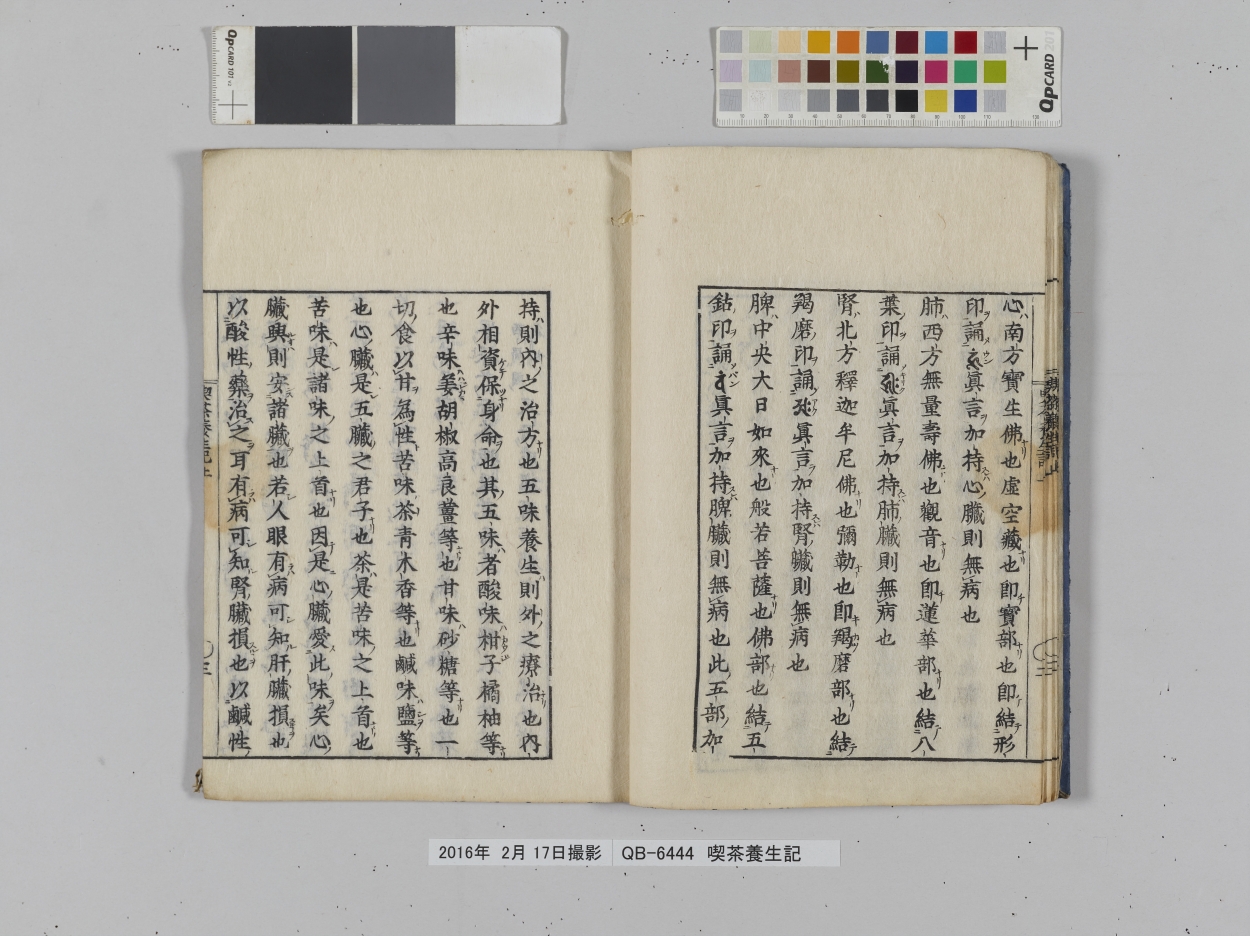 QPCARD 101 v2
QPCARD 201
心南方寶生佛也虛空藏也即寶部也即結形
印誦眞言加持心臟則無病也
肺西方無量壽佛也觀音也即蓮華部也結八
葉印誦眞言加持肺臟則無病也
腎北方釋迦牟尼佛也彌勒也即羯磨部也結
羯磨印誦眞言加持腎臟則無病也
脾中央大日如來也般若菩薩也佛部也結五
鈷印誦眞言加持脾臟則無病也此五部加
持則內之治方也五味養生則外之療治也內
外相資保身命也其五味者酸味柑子橘柚等
也辛味姜胡椒高良薑等也甘味砂糖等也一
切食以甘為性苦味茶青木香等也鹹味鹽等
也心臟是五臟之君子也茶是苦味之上首也
苦味是諸味之上首也因是心臟愛此味矣心
臟興則安諸臟也若人眼有病可知肝臟損也
以酸性藥治之耳有病可知腎臟損也以鹹性
2016年 2月 17日撮影 QB-6444 喫茶養生記